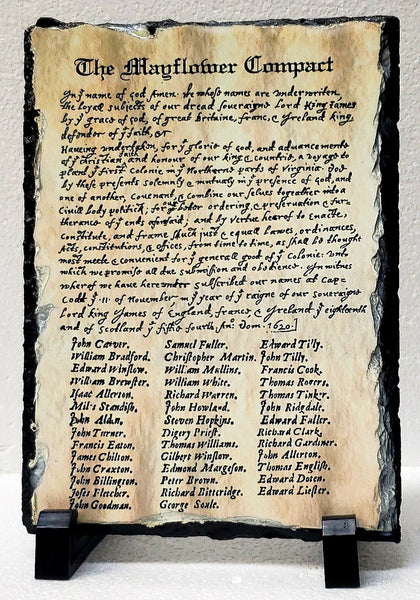 The Mayflower Compact
In yͤ name of god Amen. We whose names are underwriten,
the loyal subjects of our dread soveraigne Lord King James
by yͤ grace of god, of great Britaine, franc, & Ireland king,
defender of yͤ faith, &c
Haveing undertaken, for yͤ glorie of god, and advancemente
of yͤ christian faith and honour of our king & countrie, a voyage to
plant yͤ first Colonie in yͤ Northerne parts of Virginia. Doe
by these presents solemnly & mutualy in yͤ presence of god, and
one of another, covenant, & combine our selves togeather into a
Civill body politick; for our better ordering, & preservation & fur-
therance of yͤ ends aforesaid; and by vertue hearof to enacte,
constitute, and frame shuch just & equall Lawes, ordinances,
Acts, constitutions, & offices, from time to time, as shall be thought
most meete & convenient for yͤ generall good of yͤ Colonie: unto
which we promise all due submission and obedience. In witnes
wherof we have hereunder subscribed our names at Cap-
Codd yͤ .11. of November, in yͤ year of yͤ raigne of our soveraigne
Lord king James of England, franc, & Ireland yͤ eighteenth
and of Scotland yͤ fiftie fourth. Anᵒ: Dom. 1620.
John Carver. Samuel Fuller. Edward Tilly.
William Bradford. Christopher Martin. John Tilly.
Edward Winslow. William Mullins. Francis Cook.
William Brewster. William White. Thomas Rogers.
Isaac Allerton. Richard Warren. Thomas Tinker.
Miles Standish. John Howland. John Ridgdale.
John Aldin. Steven Hopkins. Edward Fuller.
John Turner. Digery Priest. Richard Clark.
Francis Eaton. Thomas Williams. Richard Gardiner.
James Chilton. Gilbert Winslow. John Allerton.
John Craxton. Edmond Margeson. Thomas English.
John Billington. Peter Brown. Edward Doten.
Joses Fletcher. Richard Bitteridge. Edward Liester.
John Goodman. George Soule.